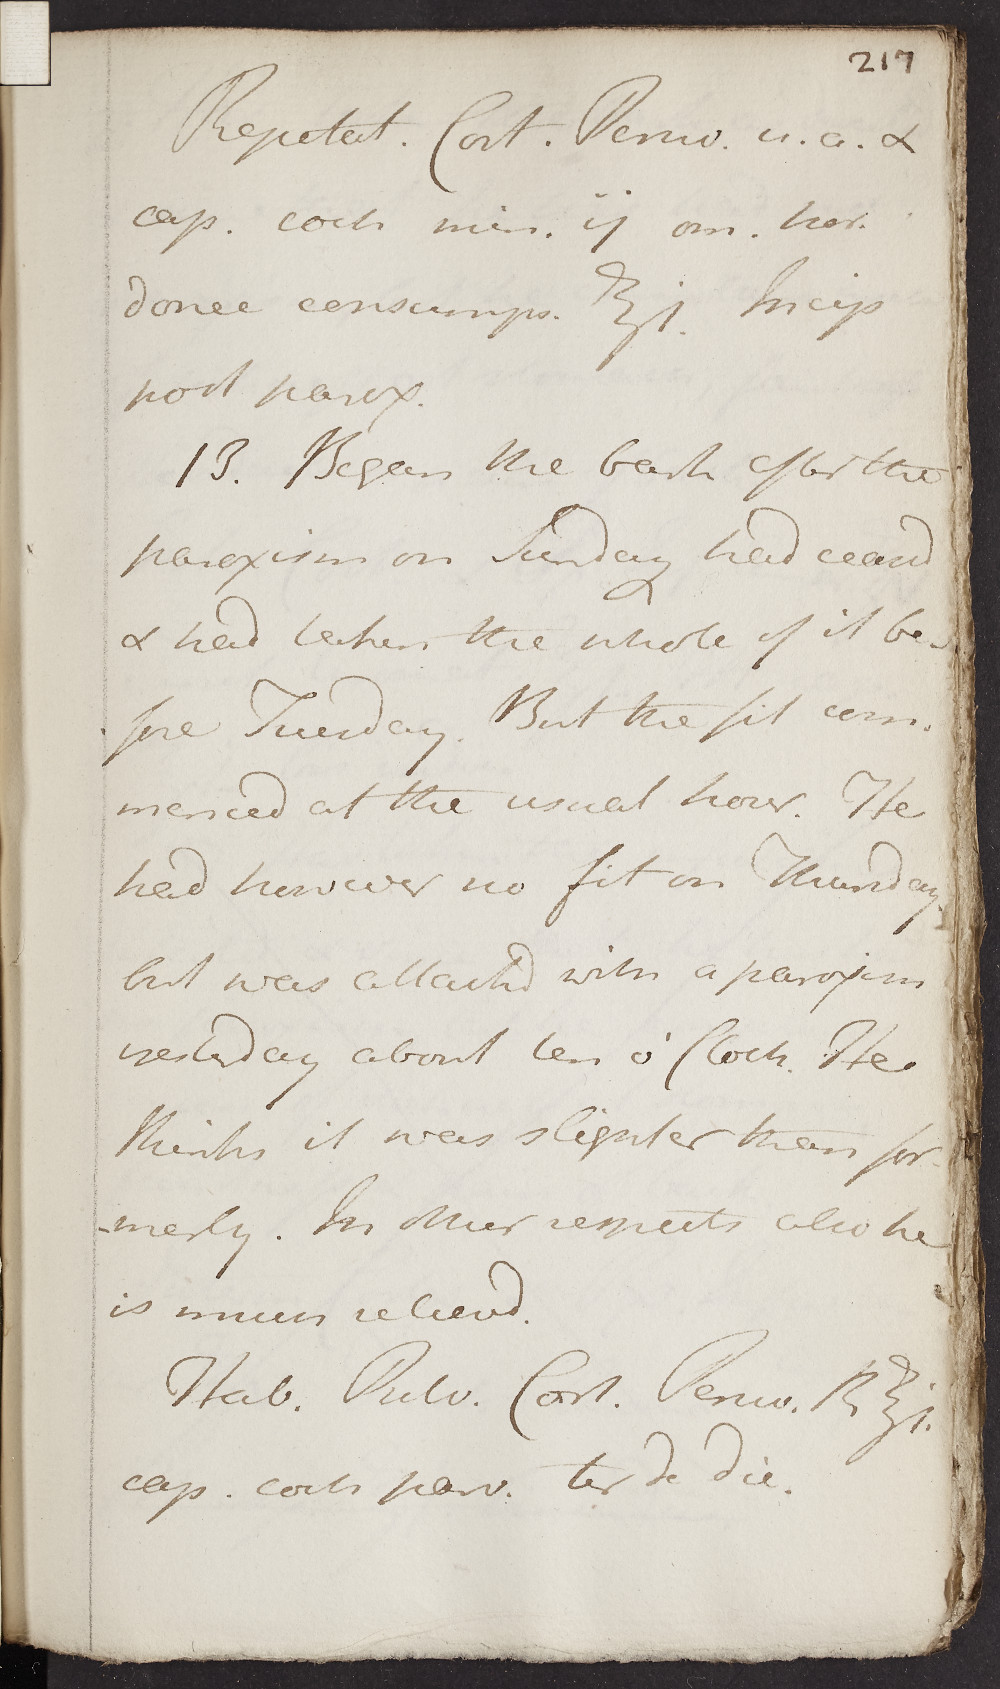 217
Repetat. Cort. Peruv. u. a. &
cap. coch min. ij om. hor.
donec consumps. ℥j. Incip
post parox.
13. Began the bark after the
paroxism on Sunday had ceasd
& had taken the whole of it be-
fore Tuesday. But the fit com-
menced at the usual hour. He
had however no fit on Thursday.
but was attackd with a paroxism
yesterday about ten o'Clock. He
thinks it was slighter than for-
merly. In other respects also he
is much relievd.
Hab. Pulv. Cort. Peruv. ℞ ℥j.
cap. coch parv. ter de die.